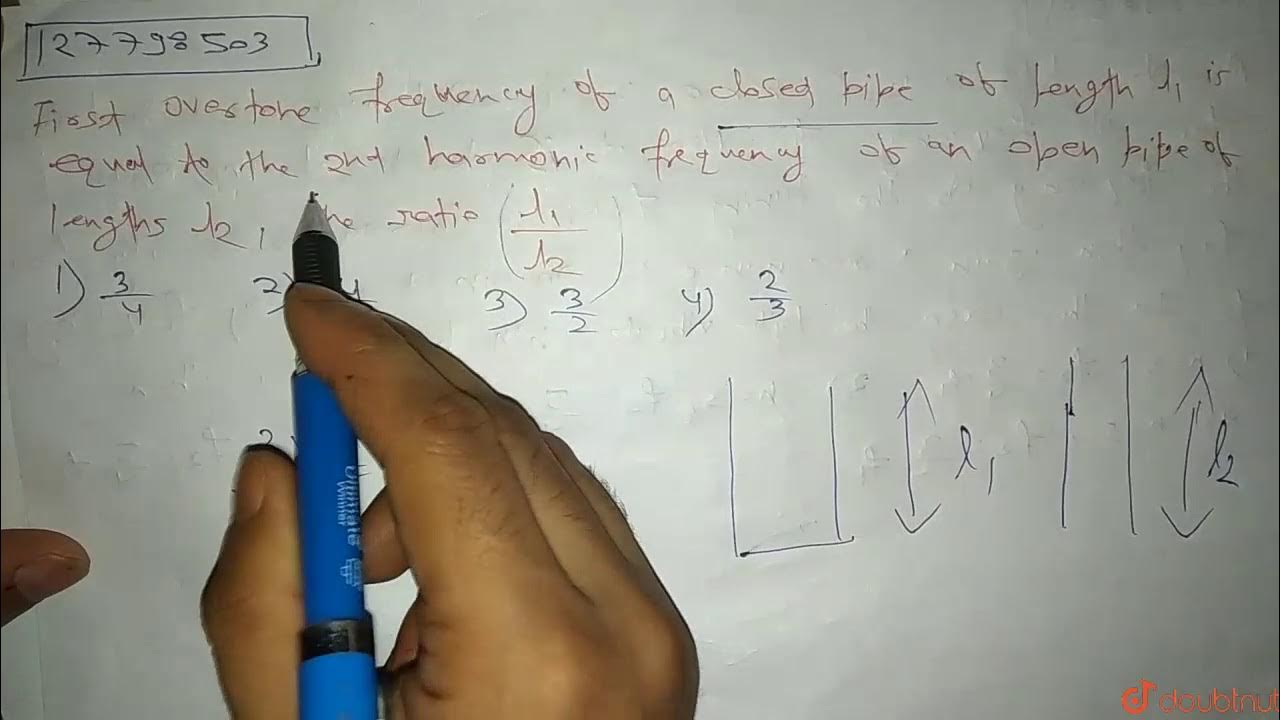 127798503
First overtone frequency of a closed pipe of length l1 is
equal to the 2nd harmonic frequency of an open pipe of
lengths l2, ratio (l1/l2)
1) 3/4 2) 3) 3/2 4) 2/3
l1 l2
doubtnut